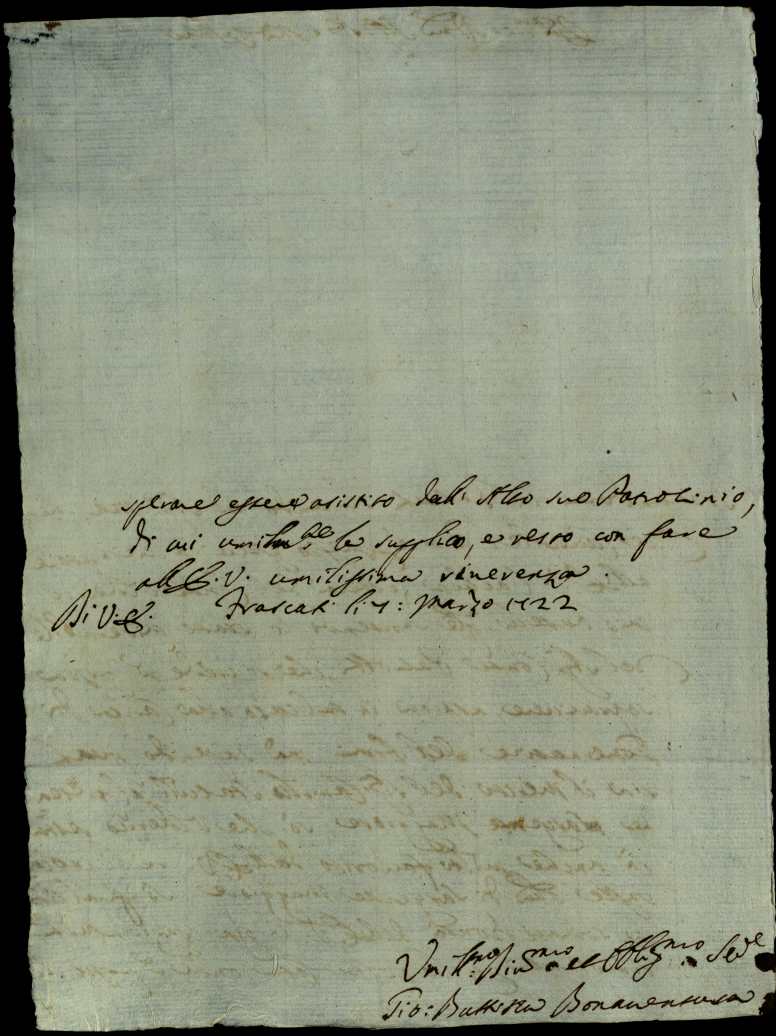 sperare essere asistito dall' Alto suo Patrocinio,
di cui umilm.te la supplico, e resto con fare
all' E. V. umilissima riverenza.
Di V. E. Frascati li : Marzo 1722
Umil.mo Div.mo et Obblig.mo Ser.e
Gio: Battista Bonaventura